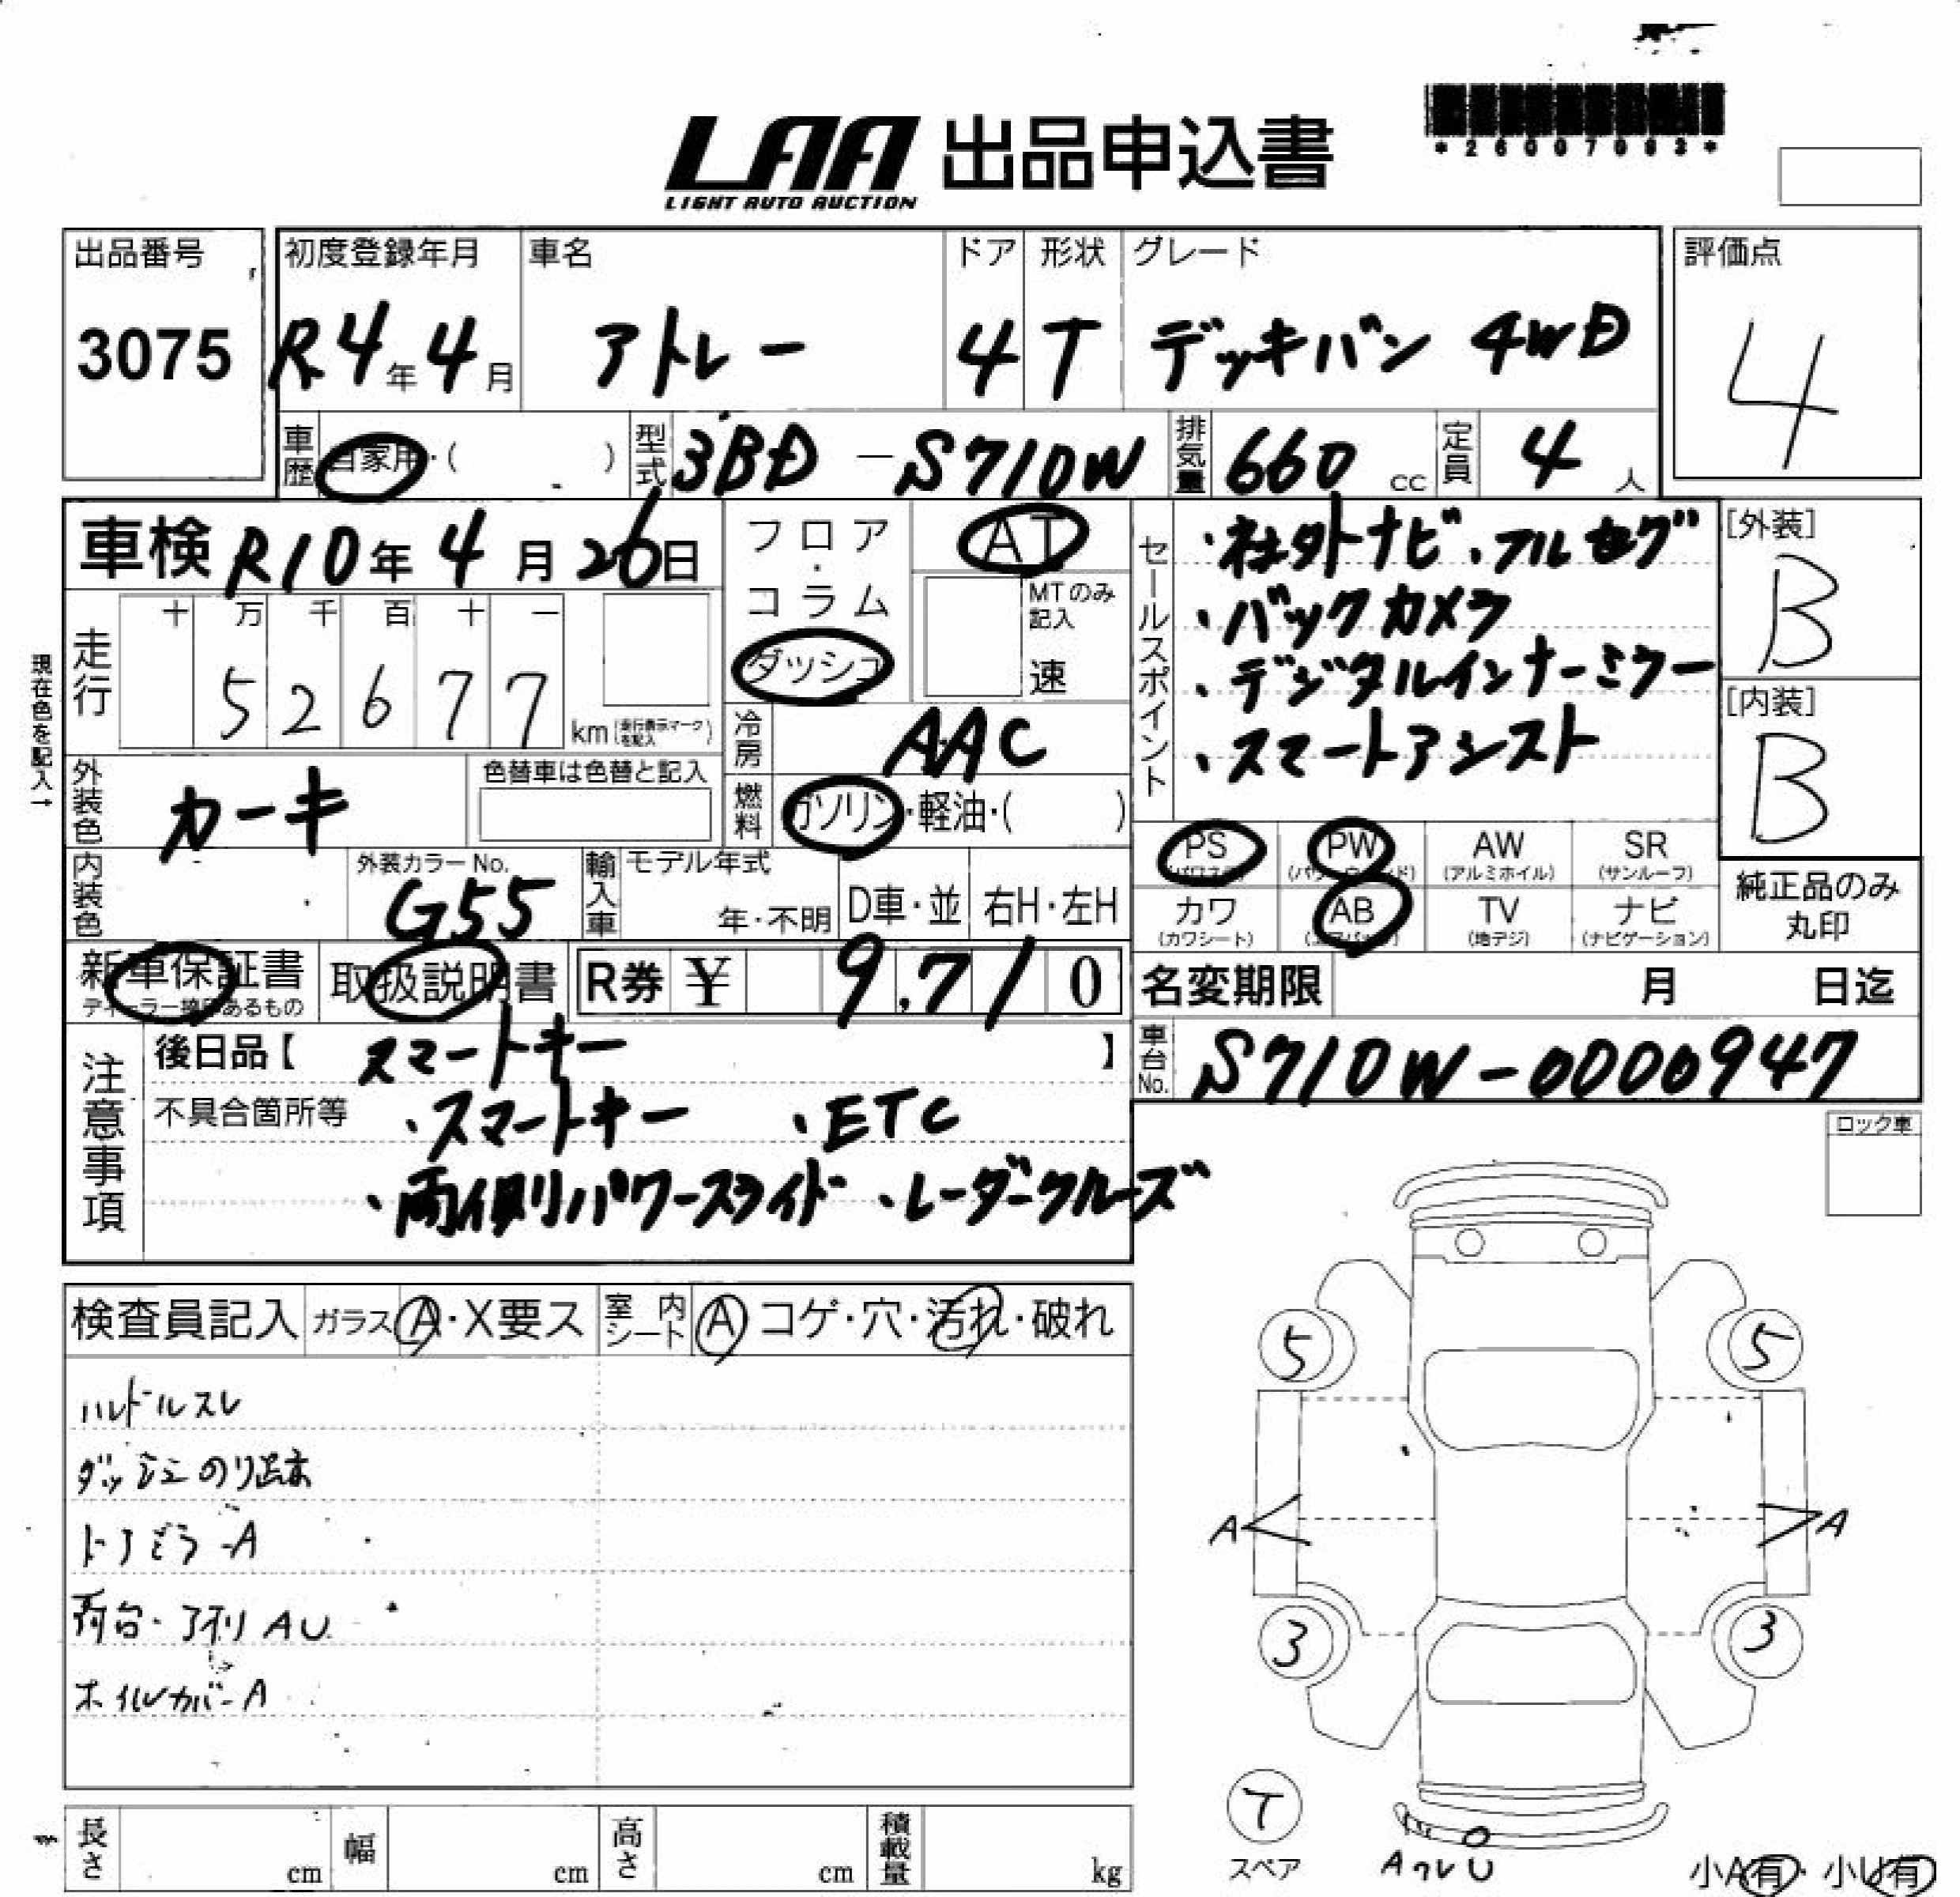 LAA 出品申込書
LIGHT AUTO AUCTION
*26007093*
出品番号 初度登録年月 車名 ドア 形状 グレード 評価点
3075 R4年4月 アトレー 4 T デッキバン 4WD 4
車歴 自家用・( ) 型式 3BD-S710W 排気量 660 cc 定員 4人
車検 R10年4月26日 フロア・コラム ダッシュ AT
MTのみ記入 速
セールスポイント
・社外ナビ、フルセグ
・バックカメラ
・デジタルインナーミラー
・スマートアシスト
[外装] B
[内装] B
現在色を記入→
走行 十 万 千 百 十 一
5 2 6 7 7 km (走行表示マークを記入)
冷房 AAC
外装色 カーキ 色替車は色替と記入
燃料 ガソリン・軽油・( )
PS AW SR
PW (パワーウィンド) (アルミホイル) (サンルーフ)
カワ AB TV ナビ
(カワシート) (地デジ) (ナビゲーション)
純正品のみ丸印
内装色 外装カラーNo. G55 輸入車 モデル年式 年・不明 D車・並 右H・左H
新車保証書 取扱説明書 R券 ¥ 9,710
名変期限 月 日迄
車台No. S710W-0000947
注意事項
後日品【 スマートキー 】
不具合箇所等 ・スマートキー ・ETC
・両側パワースライド ・レーダークルーズ
ロック車
検査員記入 ガラス A・X要ス 室内シート A コゲ・穴・汚れ・破れ
ハンドルスレ
ダッシュのり跡
ドアミラーA
荷台・アオリ AU
ホイルカバーA
5 5
A A
3 3
T
スペア
小A有・小U有
長さ cm 幅 cm 高さ cm 積載量 kg